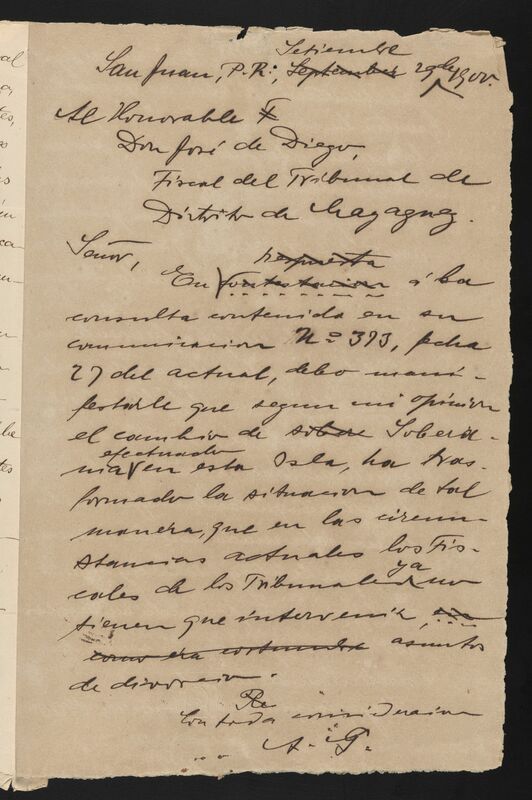 Setiembre
San Juan, P.R., September 29 de 1900.
Al Honorable F
Don José de Diego,
Fiscal del Tribunal de
Distrito de Mayaguez.
Señor,
respuesta
En contestacion á la
consulta contenida en su
comunicacion Nº 393, fecha
27 del actual, debo mani-
festarle que segun mi opinion
el cambio de sobre Sobera-
efectuado
nia en esta Isla, ha tras-
formado la situacion de tal
manera, que en las circun-
stancias actuales los Fis-
ya
cales de los Tribunales no
tienen que intervenir, en
como era costumbre asuntos
de divorcio.
Re
Con toda consideracion
A. G.